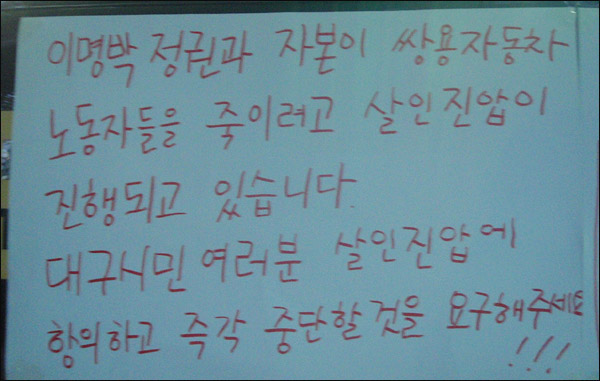 이명박 정권과 자본이 쌍용자동차
노동자들을 죽이려고 살인진압이
진행되고 있습니다.
대구시민 여러분 살인진압에
항의하고 즉각 중단할것을 요구해주세요
!!!